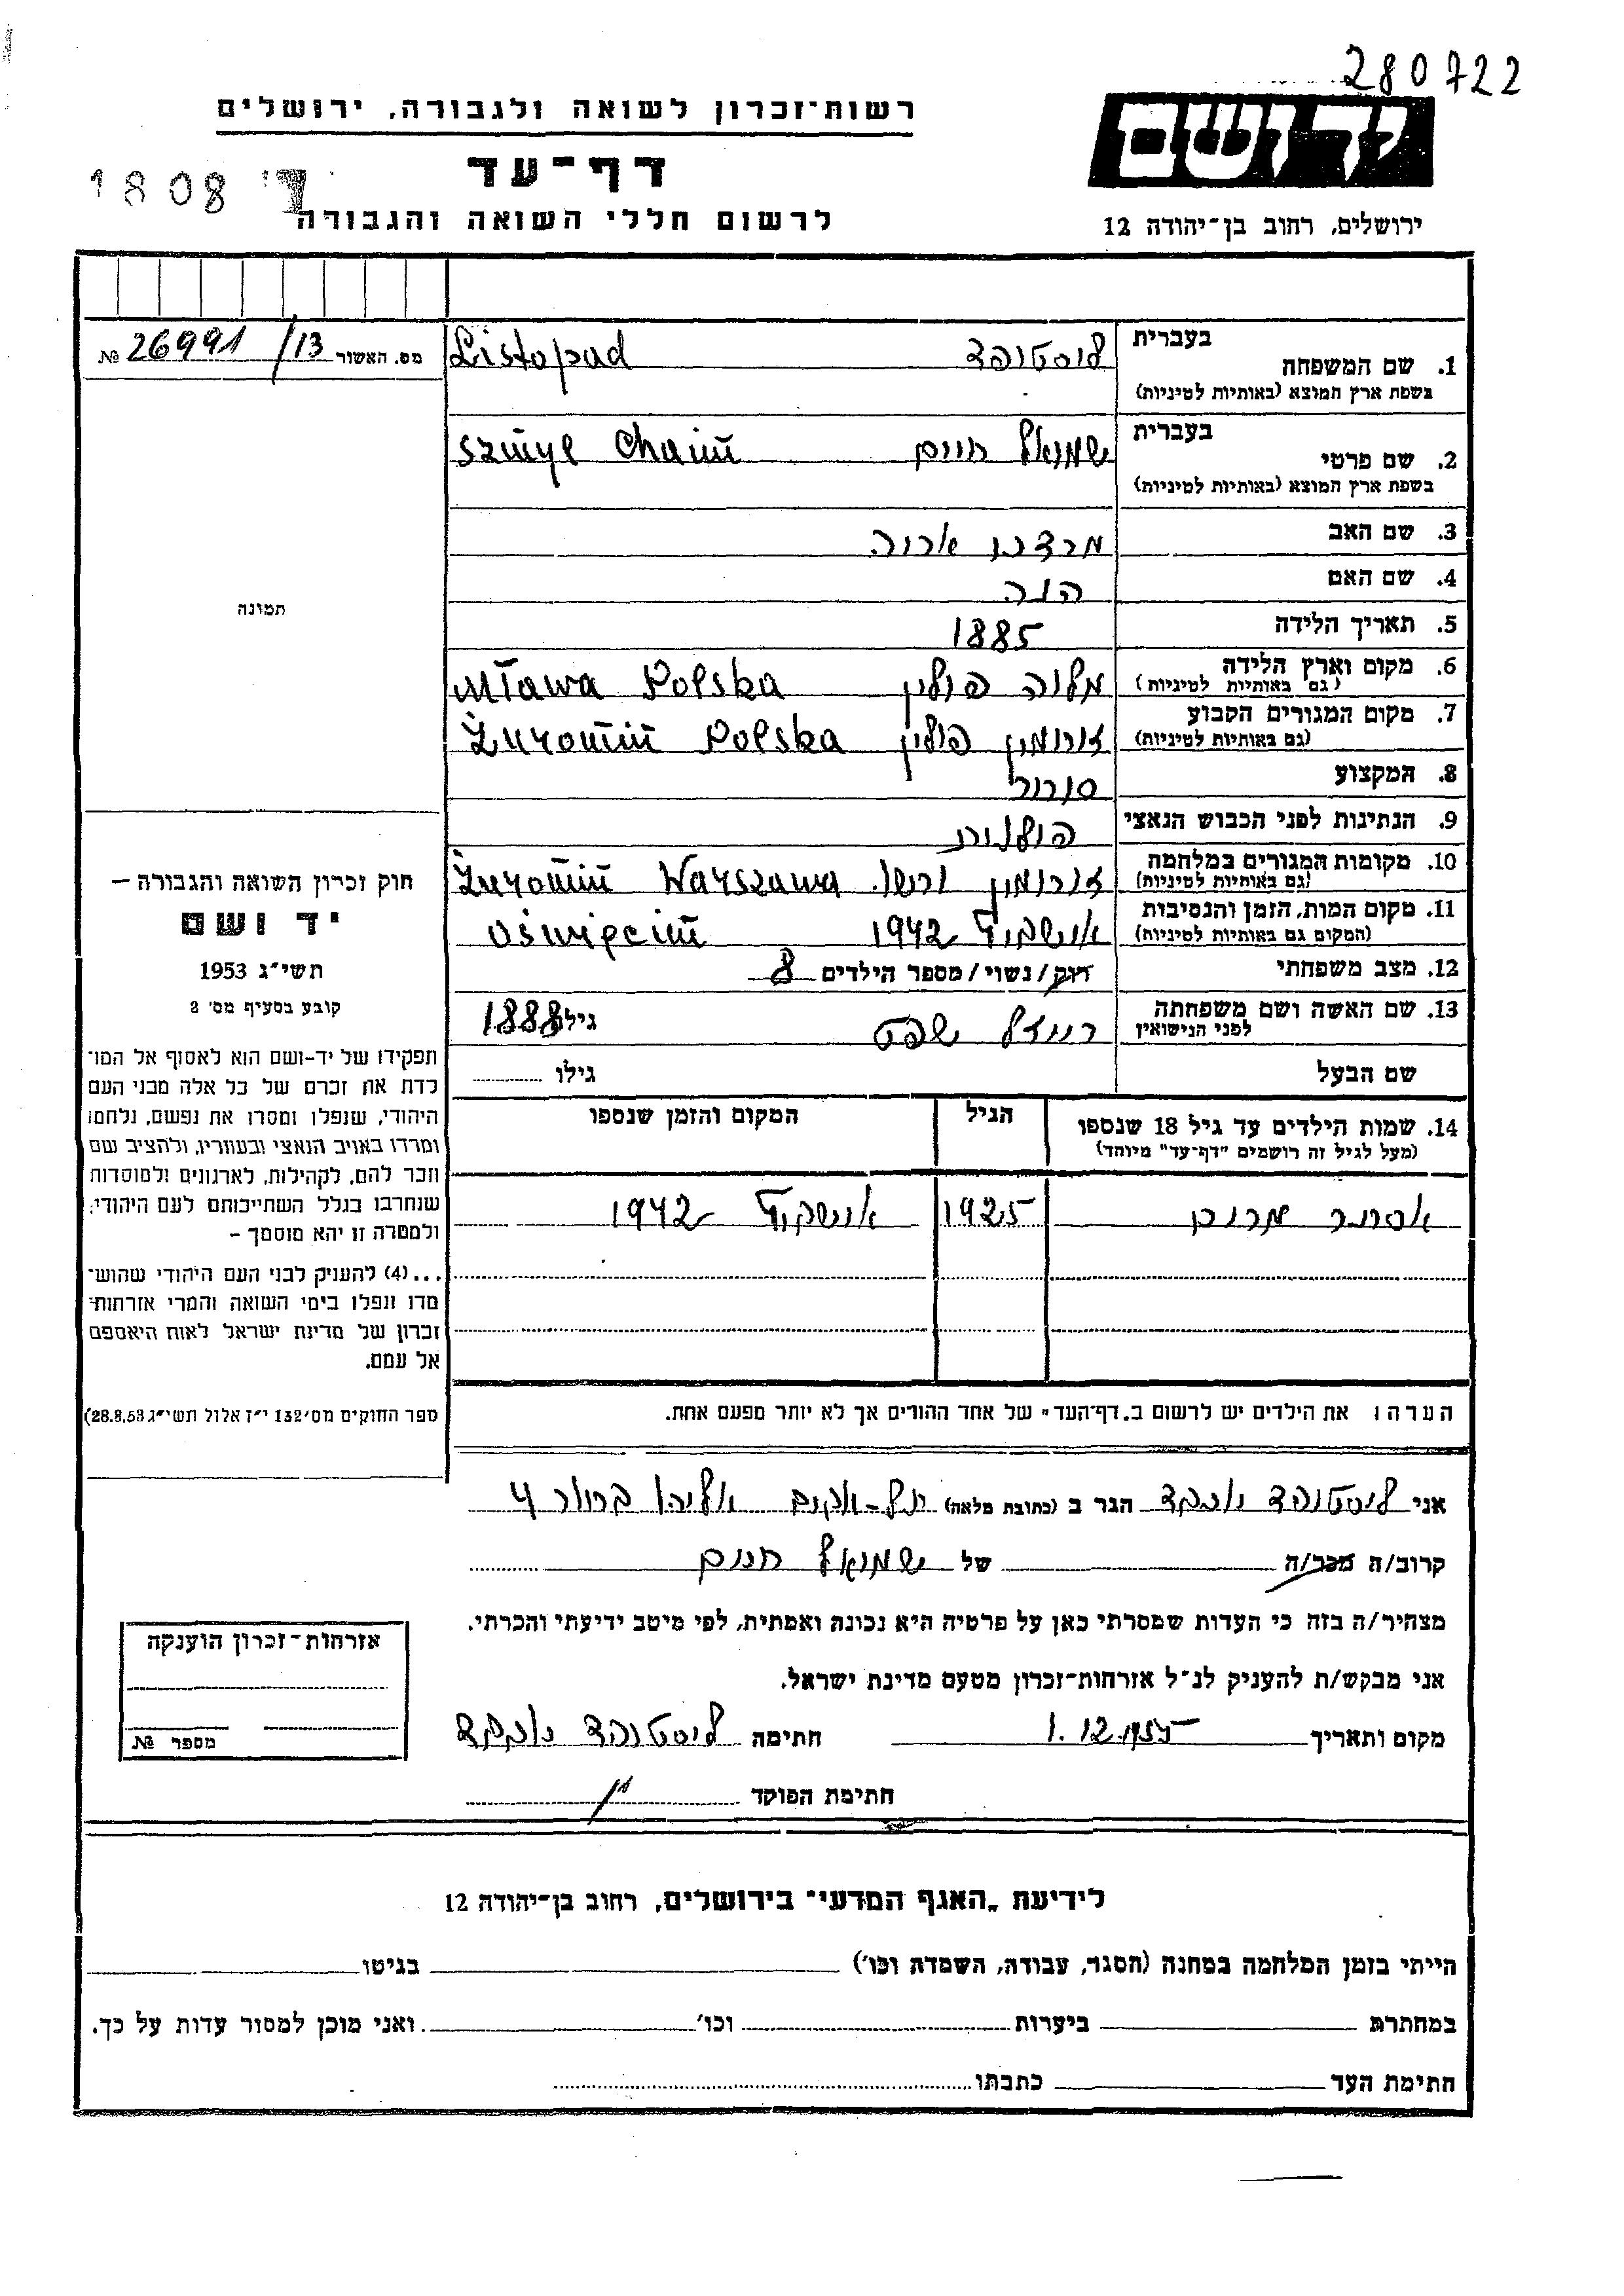 280722
רשות־זכרון לשואה ולגבורה, ירושלים
יד ושם
דף־עד
1808 ד'
לרשום חללי השואה והגבורה
ירושלים, רחוב בן־יהודה 12
מס. האשור 26991/13 №
בעברית
1. שם המשפחה ליסטופד Listopad
בשפת ארץ המוצא (באותיות לטיניות)
בעברית
2. שם פרטי שמואל חיים Szmyl Chaim
בשפת ארץ המוצא (באותיות לטיניות)
3. שם האב מרדכי אריה
4. שם האם חוה
5. תאריך הלידה 1885
6. מקום וארץ הלידה מלוה פולין Mława Polska
(גם באותיות לטיניות)
7. מקום המגורים הקבוע זורומין פולין Żuromin Polska
(גם באותיות לטיניות)
8. המקצוע סוחר
9. הנתינות לפני הכבוש הנאצי פולנית
10. מקומות המגורים במלחמה זורומין ורשו. Żuromin Warszawa
(גם באותיות לטיניות)
11. מקום המות, הזמן והנסיבות אושביץ 1942 Oświęcim
(המקום גם באותיות לטיניות)
12. מצב משפחתי רוק/נשוי/מספר הילדים 8
13. שם האשה ושם משפחתה לפני הנישואין רייזל שפט גילה 1888
שם הבעל גילו
14. שמות הילדים עד גיל 18 שנספו הגיל המקום והזמן שנספו
(מעל לגיל זה רושמים "דף־עד" מיוחד)
אסתר מרים 1925 אושביץ 1942
הערה: את הילדים יש לרשום ב„דף־העד" של אחד ההורים אך לא יותר מפעם אחת.
תמונה
חוק זכרון השואה והגבורה –
יד ושם
תשי״ג 1953
קובע בסעיף מס׳ 2
תפקידו של יד-ושם הוא לאסוף אל המו־
לדת את זכרם של כל אלה מבני העם
היהודי, שנפלו ומסרו את נפשם, נלחמו
ומרדו באויב הנאצי ובעוזריו, ולהציב שם
וזכר להם, לקהילות, לארגונים ולמוסדות
שנחרבו בגלל השתייכותם לעם היהודי;
ולמטרה זו יהא מוסמך –
...(4) להעניק לבני העם היהודי שהוש־
מדו ונפלו בימי השואה והמרי אזרחות־
זכרון של מדינת ישראל לאות היאספם
אל עמם.
(ספר החוקים מס׳ 132 י״ז אלול תשי״ג 28.8.53)
אני ליסטופד יעקב הגר ב (כתובת מלאה) תל-אביב אליהו 4
קרוב/ה מכר/ה של שמואל חיים
מצהיר/ה בזה כי העדות שמסרתי כאן על פרטיה היא נכונה ואמתית, לפי מיטב ידיעתי והכרתי.
אני מבקש/ת להעניק לנ״ל אזרחות־זכרון מטעם מדינת ישראל.
מקום ותאריך 1.12.1955 חתימה ליסטופד יעקב
חתימת הפוקד
אזרחות־זכרון הוענקה
מספר №
לידיעת „האגף המדעי" בירושלים, רחוב בן־יהודה 12
הייתי בזמן המלחמה במחנה (הסגר, עבודה, השמדה וכו׳) בגיטו
במחתרת ביערות וכו׳ ואני מוכן למסור עדות על כך.
חתימת העד כתבתו